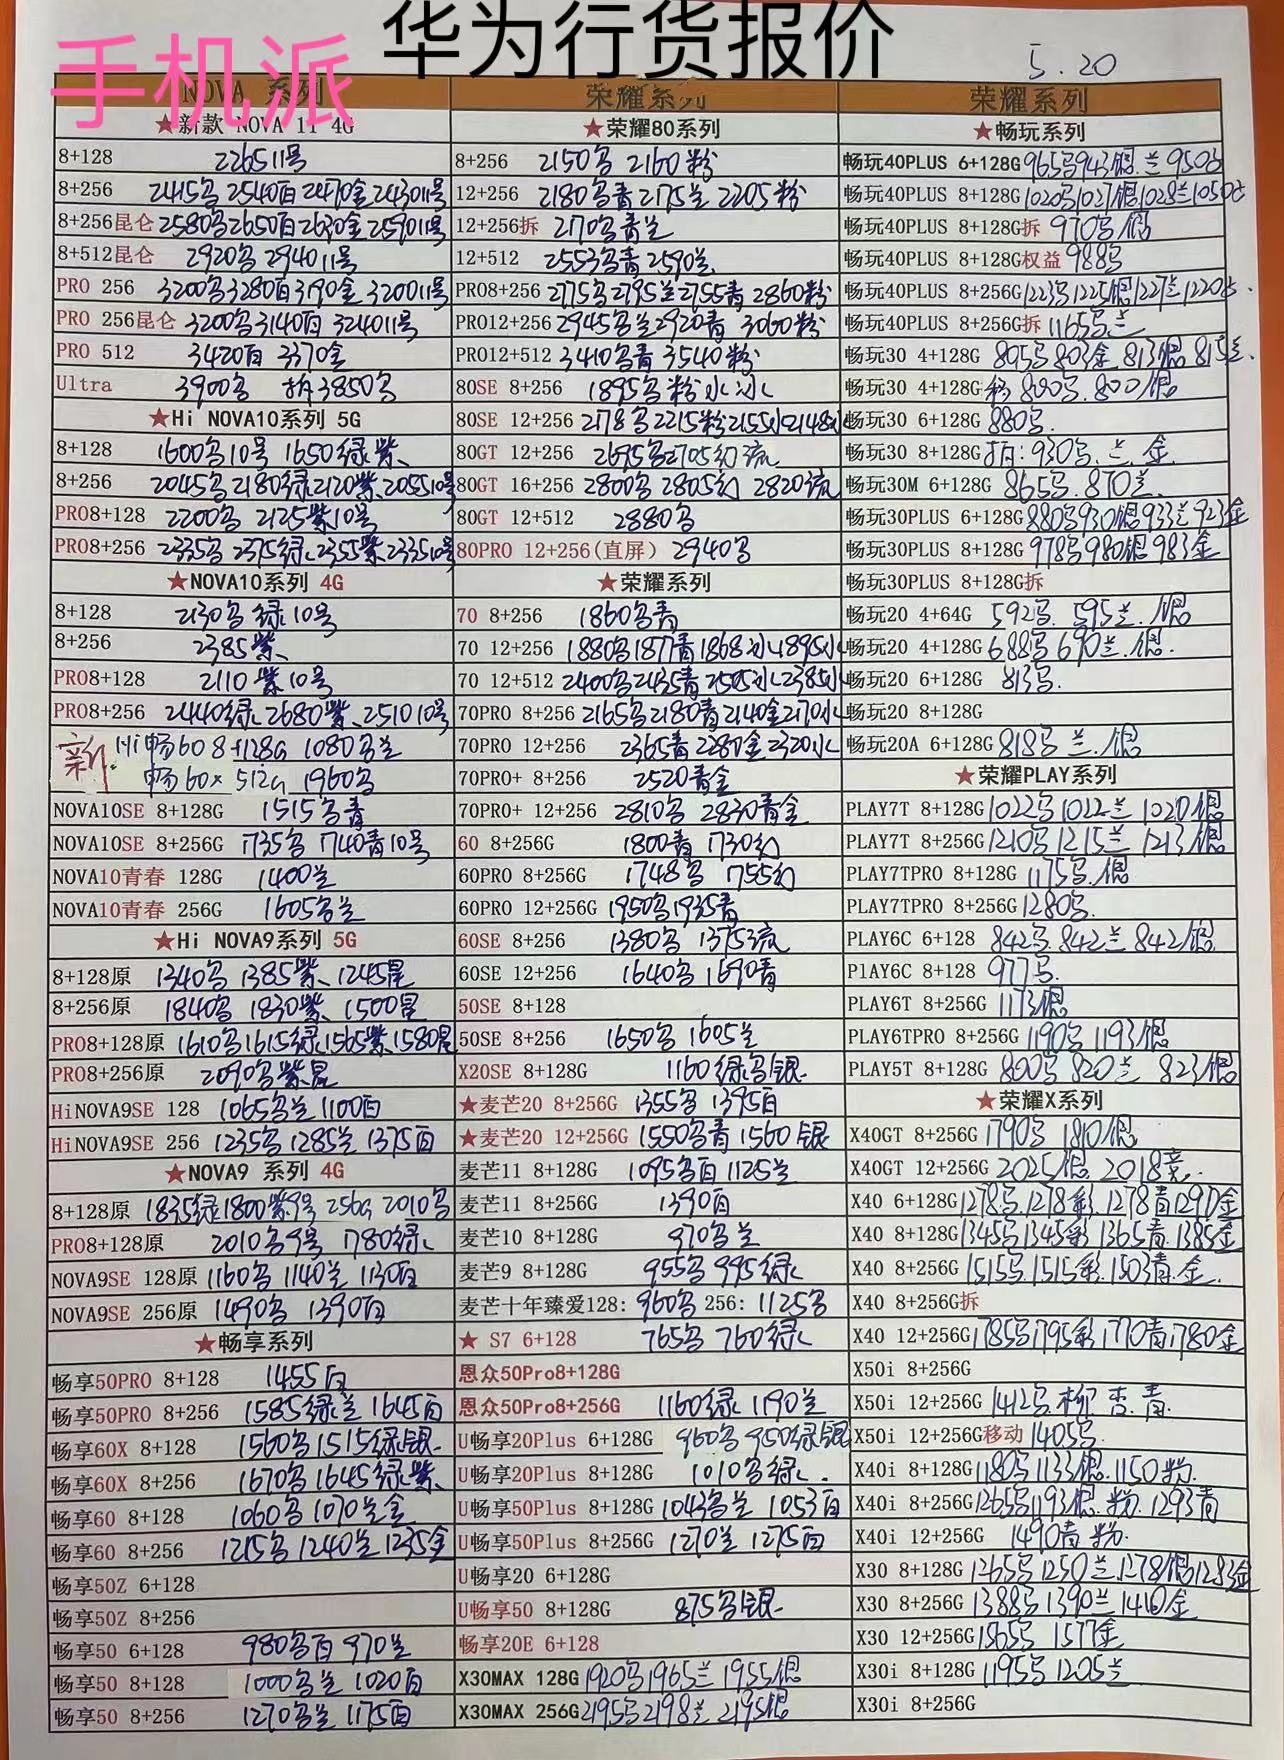 华为行货报价
手机派
5.20
NOVA 系列
★新款 NOVA 11 4G
8+128 2265 11号
8+256 2415乌 2540百 2470金 2430 11号
8+256昆仑 2580乌 2650百 2630金 2590 11号
8+512昆仑 2920乌 2940 11号
PRO 256 3200乌 3280百 3190金 3200 11号
PRO 256昆仑 3200乌 3140百 3240 11号
PRO 512 3420百 3370金
Ultra 3900乌 拆3850乌
★Hi NOVA10系列 5G
8+128 1600乌10号 1650绿紫
8+256 2045乌 2180绿 2120紫 2055 10号
PRO8+128 2200乌 2125紫10号
PRO8+256 2335乌 2375绿 2355紫 2335 10号
★NOVA10系列 4G
8+128 2130乌 绿10号
8+256 2385紫
PRO8+128 2110 紫10号
PRO8+256 2440绿 2680紫 2510 10号
新 Hi畅60 8+128G 1080乌兰
畅60X 512G 1960乌
NOVA10SE 8+128G 1515乌青
NOVA10SE 8+256G 1735乌 1740青10号
NOVA10青春 128G 1400兰
NOVA10青春 256G 1605乌兰
★Hi NOVA9系列 5G
8+128原 1340乌 1385紫 1245星
8+256原 1840乌 1830紫 1500星
PRO8+128原 1610乌 1615绿 1565紫 1580星
PRO8+256原 2090乌紫星
HiNOVA9SE 128 1065乌兰 1100百
HiNOVA9SE 256 1235乌 1285兰 1375百
★NOVA9 系列 4G
8+128原 1835绿 1800紫9号 256G 2010乌
PRO8+128原 2010乌9号 1780绿
NOVA9SE 128原 1160乌 1140兰 1130百
NOVA9SE 256原 1490乌 1390百
★畅享系列
畅享50PRO 8+128 1455百
畅享50PRO 8+256 1585绿兰 1645百
畅享60X 8+128 1560乌 1515绿银
畅享60X 8+256 1670乌 1645绿紫
畅享60 8+128 1060乌 1070兰金
畅享60 8+256 1215乌 1240兰 1235金
畅享50Z 6+128
畅享50Z 8+256
畅享50 6+128 980乌百 970兰
畅享50 8+128 1000乌兰 1020百
畅享50 8+256 1270乌兰 1175百
荣耀系列
★荣耀80系列
8+256 2150乌 2160粉
12+256 2180乌青 2175兰 2205粉
12+256拆 2170乌青兰
12+512 2553乌青 2590兰
PRO8+256 2775乌 2795兰 2755青 2860粉
PRO12+256 2945乌兰 2920青 3060粉
PRO12+512 3410乌青 3540粉
80SE 8+256 1895乌粉水冰
80SE 12+256 2178乌 2215粉 2155冰 2148水
80GT 12+256 2695乌 2705幻 流
80GT 16+256 2800乌 2805幻 2820流
80GT 12+512 2880乌
80PRO 12+256(直屏) 2940乌
★荣耀系列
70 8+256 1860乌青
70 12+256 1880乌 1877青 1868冰 1895水
70 12+512 2400乌 2435青 2505冰 2385水
70PRO 8+256 2165乌 2180青 2140金 2170水
70PRO 12+256 2365青 2280金 2320水
70PRO+ 8+256 2520青金
70PRO+ 12+256 2810乌 2830青金
60 8+256G 1800青 1730幻
60PRO 8+256G 1748乌 1755幻
60PRO 12+256G 1950乌 1935青
60SE 8+256 1380乌 1375流
60SE 12+256 1640乌 1690青
50SE 8+128
50SE 8+256 1650乌 1605兰
X20SE 8+128G 1160绿乌银
★麦芒20 8+256G 1355乌 1395百
★麦芒20 12+256G 1550乌青 1560银
麦芒11 8+128G 1095乌百 1125兰
麦芒11 8+256G 1390百
麦芒10 8+128G 970乌兰
麦芒9 8+128G 955乌 995绿
麦芒十年臻爱128: 960乌 256: 1125乌
★ S7 6+128 765乌 760绿
恩众50Pro8+128G
恩众50Pro8+256G 1160绿 1190兰
U畅享20Plus 6+128G 960乌 950绿银
U畅享20Plus 8+128G 1010乌绿
U畅享50Plus 8+128G 1043乌兰 1053百
U畅享50Plus 8+256G 1270兰 1275百
U畅享20 6+128G
U畅享50 8+128G 875乌银
畅享20E 6+128
X30MAX 128G 1920乌 1965兰 1955银
X30MAX 256G 2195乌 2198兰 2195银
荣耀系列
★畅玩系列
畅玩40PLUS 6+128G 965乌 943银 兰 950古
畅玩40PLUS 8+128G 1020乌 1027银 1028兰 1050古
畅玩40PLUS 8+128G拆 970乌 银
畅玩40PLUS 8+128G权益 988乌
畅玩40PLUS 8+256G 1223乌 1225银 1227兰 1220古
畅玩40PLUS 8+256G拆 1165乌兰
畅玩30 4+128G 805乌 803金 813银 815兰
畅玩30 4+128G 移 800乌 800银
畅玩30 6+128G 880乌
畅玩30 8+128G 拆: 930乌 兰 金
畅玩30M 6+128G 865乌 870兰
畅玩30PLUS 6+128G 880乌 930银 933兰 923金
畅玩30PLUS 8+128G 978乌 980银 983金
畅玩30PLUS 8+128G拆
畅玩20 4+64G 592乌 595兰 银
畅玩20 4+128G 688乌 690兰 银
畅玩20 6+128G 813乌
畅玩20 8+128G
畅玩20A 6+128G 818乌 兰 银
★荣耀PLAY系列
PLAY7T 8+128G 1022乌 1022兰 1020银
PLAY7T 8+256G 1210乌 1215兰 1213银
PLAY7TPRO 8+128G 1175乌 银
PLAY7TPRO 8+256G 1280乌
PLAY6C 6+128 842乌 842兰 842银
PlAY6C 8+128 977乌
PLAY6T 8+256G 1173银
PLAY6TPRO 8+256G 1190乌 1193银
PLAY5T 8+128G 800乌 820兰 823银
★荣耀X系列
X40GT 8+256G 1790乌 1810银
X40GT 12+256G 2025银 2018竞
X40 6+128G 1278乌 1278彩 1278青 1290金
X40 8+128G 1345乌 1345彩 1365青 1385金
X40 8+256G 1515乌 1515彩 1503青 金
X40 8+256G拆
X40 12+256G 1785乌 1795彩 1770青 1780金
X50i 8+256G
X50i 12+256G 1412乌 柳 杏 青
X50i 12+256G移动 1405乌
X40i 8+128G 1180乌 1133银 1150粉
X40i 8+256G 1265乌 1193银 粉 1293青
X40i 12+256G 1490青 粉
X30 8+128G 1265乌 1250兰 1278银 1283金
X30 8+256G 1388乌 1390兰 1410金
X30 12+256G 1565乌 1577金
X30i 8+128G 1195乌 1205兰
X30i 8+256G